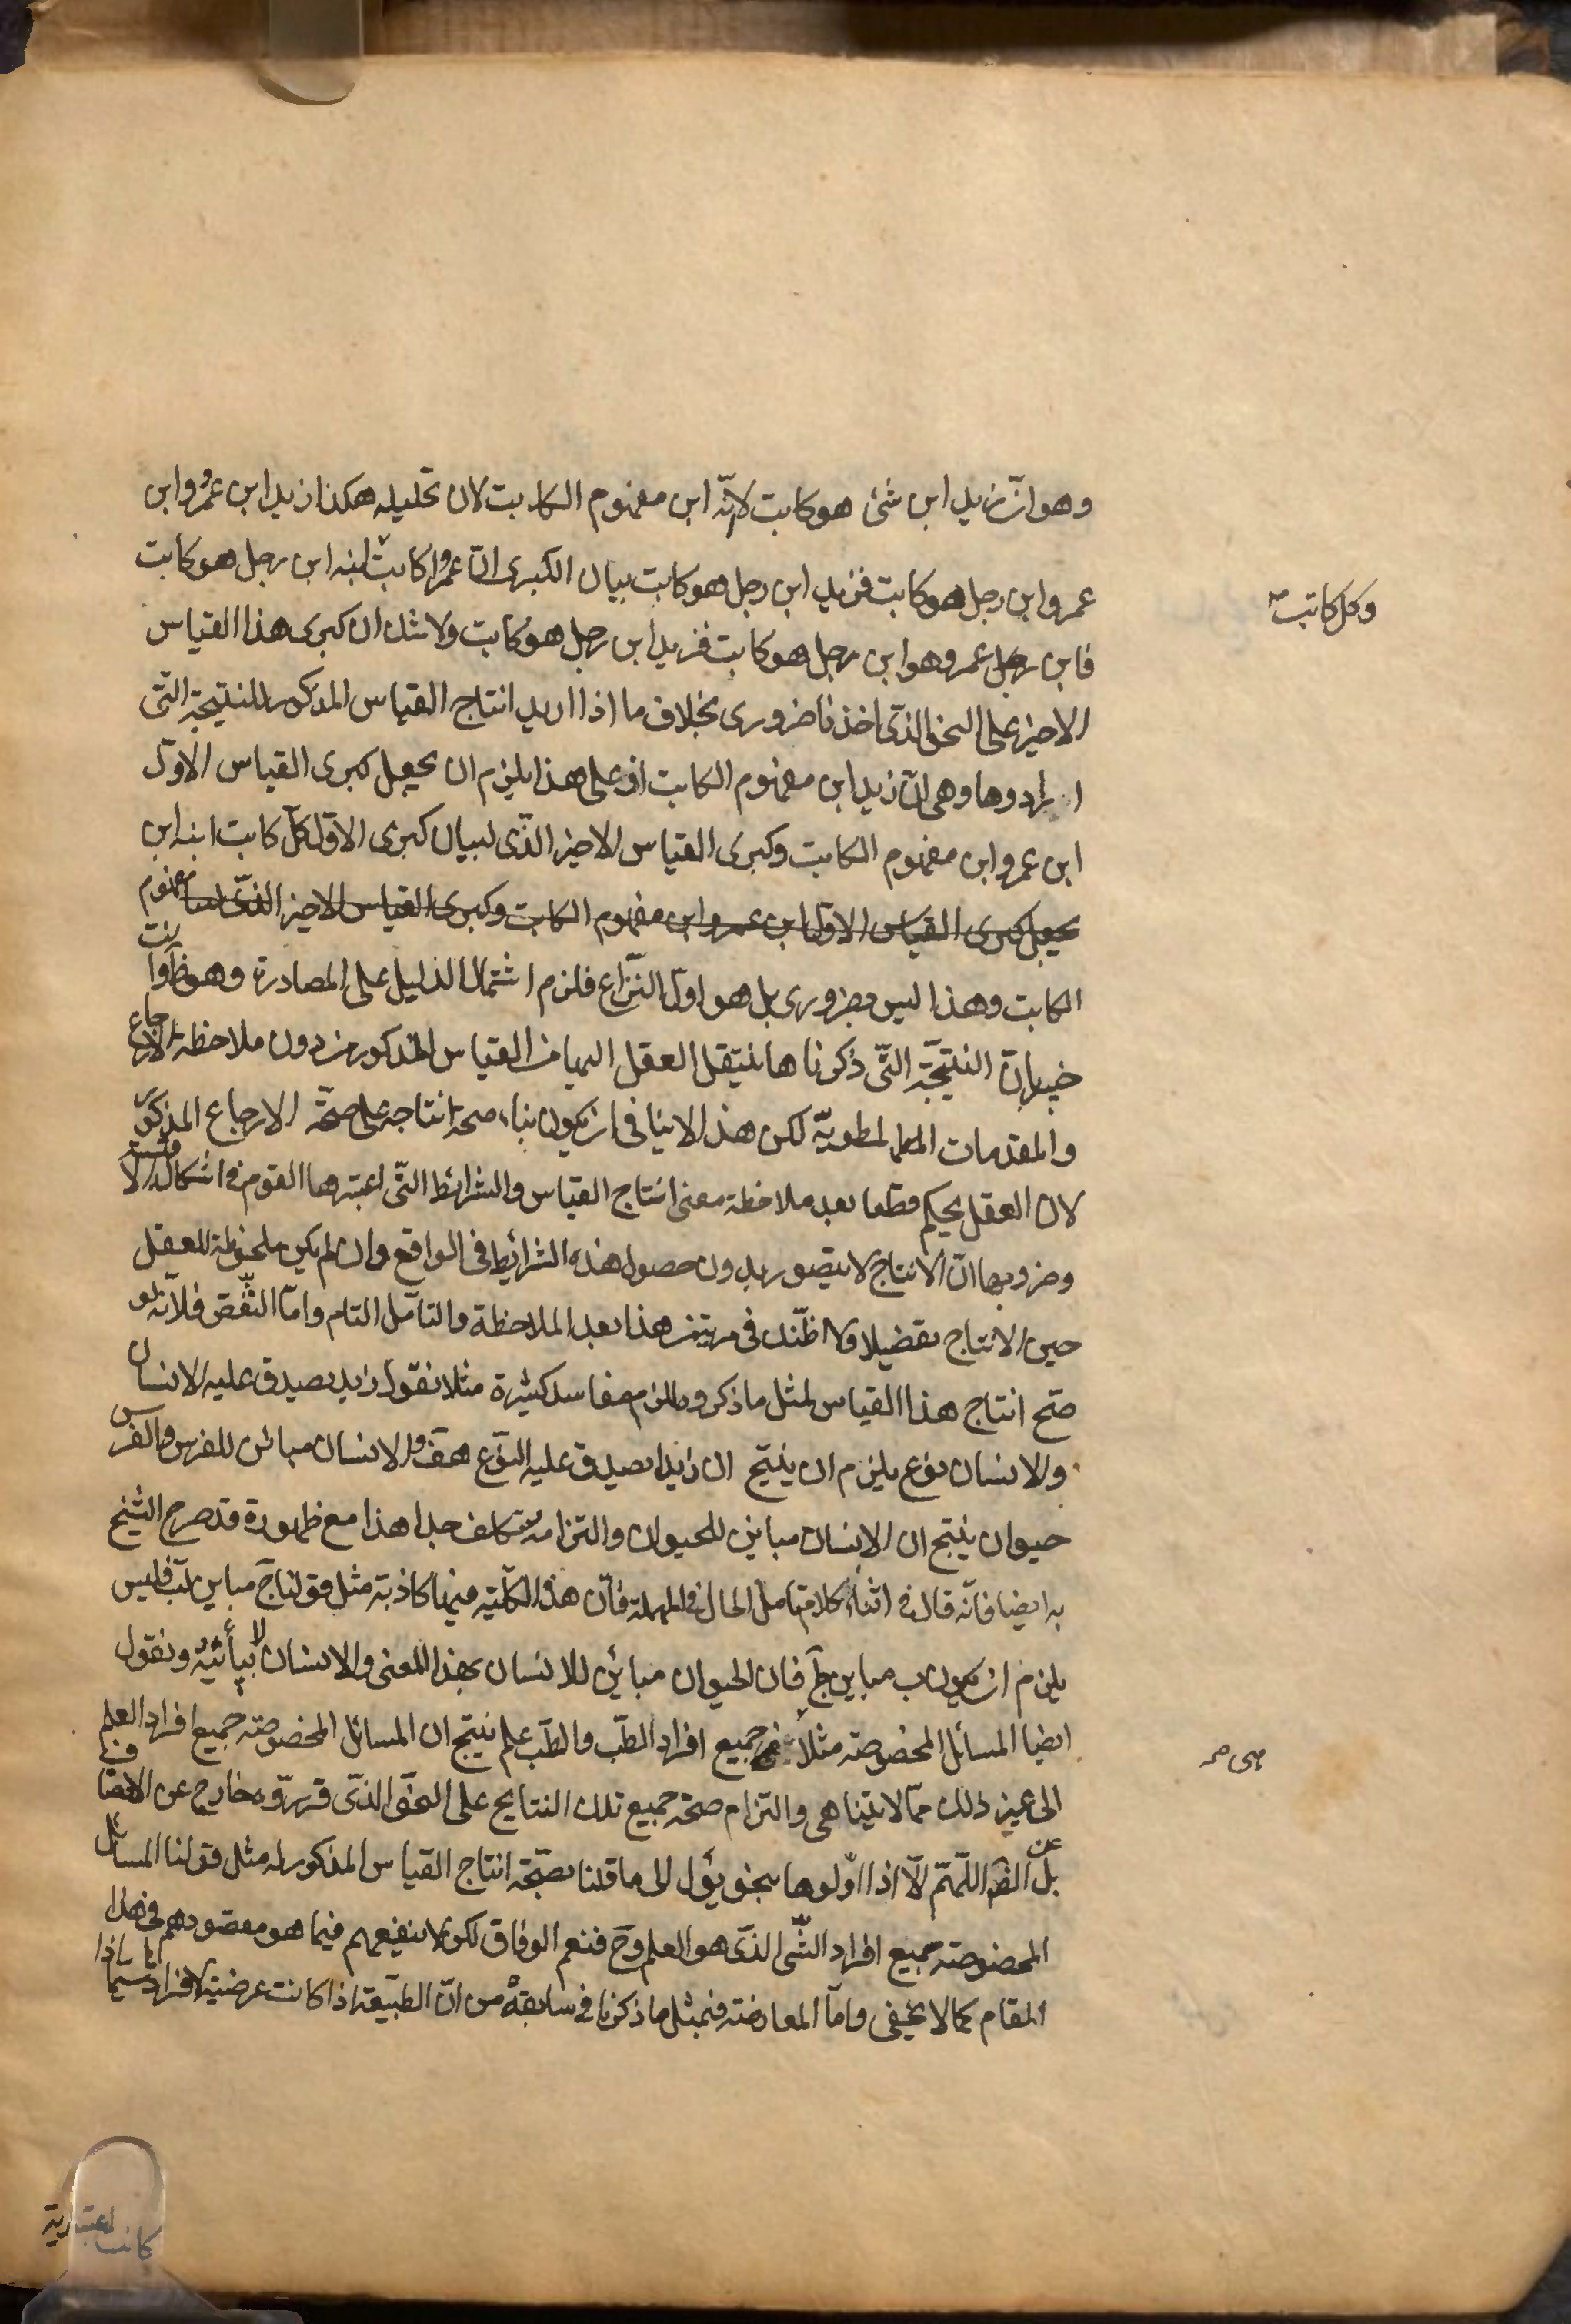 وهو انّ زيد ابن شئ هو كاتب لانّه ابن مفهوم الكاتب لان تحليله هكذا زيد ابن عمرو وابن
عمرو ابن رجل هو كاتب فزيد ابن رجل هو كاتب بيان الكبرى انّ عمروا كاتب ابنه ابن رجل هو كاتب
وكل كاتب صح
فابن عمرو هو ابن رجل هو كاتب فزيد ابن رجل هو كاتب ولا شك ان كبرى هذا القياس
الاخير على النحو الذى اخذنا ضرورى بخلاف ما اذا اريد انتاج القياس المذكور للنتيجة التى
ارادوها وهى انّ زيد ابن مفهوم الكاتب اذ على هذا يلزم ان يجعل كبرى القياس الاوّل
ابن عمرو ابن مفهوم الكاتب وكبرى القياس الاخير الذّى لبيان كبرى الاوّل كلّ كاتب ابنه ابن
يجعل كبرى القياس الاول ابن عمرو ابن مفهوم الكاتب وكبرى القياس الاخير الذّى لبيا مفهوم
الكاتب وهذا ليس بضرورى بل هو اوّل النّزاع فلزم اشتمال الدليل على المصادرة وهو ظ وانت
خبير بانّ النتيجّة التّى ذكرناها ينتقل العقل اليها من القياس المذكور من دون ملاحظة الارجاع
والمقدمات المطويّة لكن هذا لا ينافى ان يكون بناء صحة انتاجه على صحّة الارجاع المذكور
لان العقل يحكم قطعا بعد ملاحظة معنى انتاج القياس والشرائط التّى اعتبرها القوم فى اشكال الاقيسة
وضروبها انّ الانتاج لا يتصور بدون حصول هذه الشرائط فى الواقع وان لم يكن ملحوظة للعقل
حين الانتاج تفضيلا ولا اظنّك فى مرية من هذا بعد الملاحظة والتأمّل التام وامّا النّقض فلانّه لو
صحّ انتاج هذا القياس لمثل ما ذكروه لزم مفاسد كثيرة مثلا نقول زيد يصدق عليه الانسان
والانسان نوع يلزم ان ينتج ان زيدا يصدق عليه النوّع هف والانسان مبائن للفرس والفرس
حيوان ينتج ان الانسان مباين للحيوان والتزامه تكلف جدا هذا مع ظهوره قد صرح الشيخ
به ايضا فانّه قال فى اثناء كلام تأمل الحال فى المهملة فانّ هذه الكلّية فيها كاذبة مثل قولنا جَ مباين لبَ فليس
يلزم ان يكون ب مباين جَ فان الحيوان مبائن للانسان بهذا المعنى والانسان لا يبائنه ونقول
ايضا المسائل المخصوصة مثلا جميع افراد الطّب والطّب علم ينتج ان المسائل المخصوصة جميع افراد العلم
هى صح
الى غير ذلك ممّا لا يتناهى والتزام صحة جميع تلك النتايج على النحو الذّى قرروّه خارج عن الانصاف
بل عن الفهم اللّهمّ الّا اذا اوّلوها بنحو يؤل الى ما قلنا بصّحة انتاج القياس المذكور له مثل قولنا المسائل
المخصوصة جميع افراد الشّى الذّى هو العلم وحَ فنعم الوفاق لكن لا ينفعهم فيما هو مقصودهم فى هذا
المقام كما لا يخفى وامّا المعارضة فبمثل ما ذكرنا فى سابقه من انّ الطّبيعة اذا كانت عرضية لافرادها سيّما اذا
كانت اعتبارية